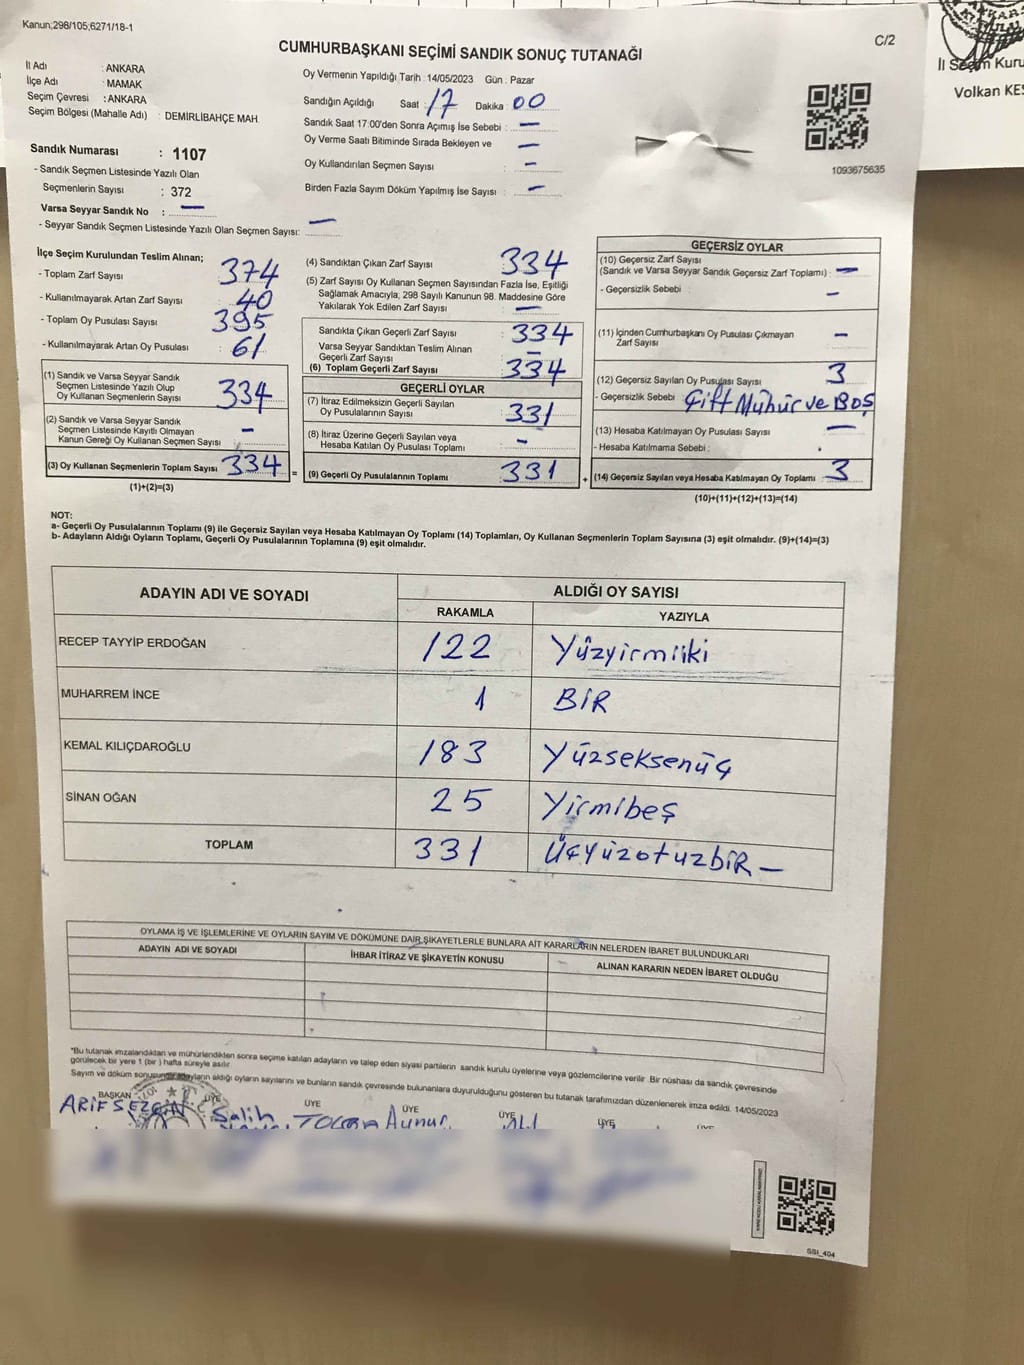 Kanun;298/105;6271/18-1
C/2
CUMHURBAŞKANI SEÇİMİ SANDIK SONUÇ TUTANAĞI
İl Adı : ANKARA
İlçe Adı : MAMAK
Seçim Çevresi : ANKARA
Seçim Bölgesi (Mahalle Adı) : DEMİRLİBAHÇE MAH
Sandık Numarası : 1107
- Sandık Seçmen Listesinde Yazılı Olan
Seçmenlerin Sayısı : 372
Varsa Seyyar Sandık No : —
- Seyyar Sandık Seçmen Listesinde Yazılı Olan Seçmen Sayısı: —
Oy Vermenin Yapıldığı Tarih : 14/05/2023 Gün : Pazar
Sandığın Açıldığı Saat : 17 Dakika : 00
Sandık Saat 17:00'den Sonra Açımış İse Sebebi : —
Oy Verme Saati Bitiminde Sırada Bekleyen ve —
Oy Kullandırılan Seçmen Sayısı : —
Birden Fazla Sayım Döküm Yapılmış İse Sayısı : —
1093675635
İl Seçim Kuru
Volkan KES
İlçe Seçim Kurulundan Teslim Alınan;
- Toplam Zarf Sayısı : 374
- Kullanılmayarak Artan Zarf Sayısı : 40
- Toplam Oy Pusulası Sayısı : 395
- Kullanılmayarak Artan Oy Pusulası : 61
(1) Sandık ve Varsa Seyyar Sandık
Seçmen Listesinde Yazılı Olup
Oy Kullanan Seçmenlerin Sayısı : 334
(2) Sandık ve Varsa Seyyar Sandık
Seçmen Listesinde Kayıtlı Olmayan
Kanun Gereği Oy Kullanan Seçmen Sayısı : —
(3) Oy Kullanan Seçmenlerin Toplam Sayısı : 334
(1)+(2)=(3)
(4) Sandıktan Çıkan Zarf Sayısı : 334
(5) Zarf Sayısı Oy Kullanan Seçmen Sayısından Fazla İse, Eşitliği
Sağlamak Amacıyla, 298 Sayılı Kanunun 98. Maddesine Göre
Yakılarak Yok Edilen Zarf Sayısı : —
Sandıkta Çıkan Geçerli Zarf Sayısı : 334
Varsa Seyyar Sandıktan Teslim Alınan
Geçerli Zarf Sayısı : —
(6) Toplam Geçerli Zarf Sayısı : 334
GEÇERLİ OYLAR
(7) İtiraz Edilmeksizin Geçerli Sayılan
Oy Pusulalarının Sayısı : 331
(8) İtiraz Üzerine Geçerli Sayılan veya
Hesaba Katılan Oy Pusulası Toplamı : -
= (9) Geçerli Oy Pusulalarının Toplamı : 331
GEÇERSİZ OYLAR
(10) Geçersiz Zarf Sayısı
(Sandık ve Varsa Seyyar Sandık Geçersiz Zarf Toplamı) : —
- Geçersizlik Sebebi : —
(11) İçinden Cumhurbaşkanı Oy Pusulası Çıkmayan : —
Zarf Sayısı
(12) Geçersiz Sayılan Oy Pusulası Sayısı : 3
- Geçersizlik Sebebi : Çift Mühür ve Boş
(13) Hesaba Katılmayan Oy Pusulası Sayısı : —
- Hesaba Katılmama Sebebi :
+ (14) Geçersiz Sayılan veya Hesaba Katılmayan Oy Toplamı : 3
(10)+(11)+(12)+(13)=(14)
NOT:
a- Geçerli Oy Pusulalarının Toplamı (9) ile Geçersiz Sayılan veya Hesaba Katılmayan Oy Toplamı (14) Toplamları, Oy Kullanan Seçmenlerin Toplam Sayısına (3) eşit olmalıdır. (9)+(14)=(3)
b- Adayların Aldığı Oyların Toplamı, Geçerli Oy Pusulalarının Toplamına (9) eşit olmalıdır.
ADAYIN ADI VE SOYADI ALDIĞI OY SAYISI
RAKAMLA YAZIYLA
RECEP TAYYİP ERDOĞAN 122 Yüzyirmiiki
MUHARREM İNCE 1 BİR
KEMAL KILIÇDAROĞLU 183 Yüzseksenüç
SİNAN OĞAN 25 Yirmibeş
TOPLAM 331 Üçyüzotuzbir —
OYLAMA İŞ VE İŞLEMLERİNE VE OYLARIN SAYIM VE DÖKÜMÜNE DAİR ŞİKAYETLERLE BUNLARA AİT KARARLARIN NELERDEN İBARET BULUNDUKLARI
ADAYIN ADI VE SOYADI İHBAR İTİRAZ VE ŞİKAYETİN KONUSU ALINAN KARARIN NEDEN İBARET OLDUĞU
*Bu tutanak imzalandıktan ve mühürlendikten sonra seçime katılan adayların ve talep eden siyasi partilerin sandık kurulu üyelerine veya gözlemcilerine verilir. Bir nüshası da sandık çevresinde
görülecek bir yere 1 (bir ) hafta süreyle asılır.
Sayım ve döküm sonucunda adayların aldığı oyların sayılarını ve bunların sandık çevresinde bulunanlara duyurulduğunu gösteren bu tutanak tarafımızdan düzenlenerek imza edildi. 14/05/2023
BAŞKAN ÜYE ÜYE ÜYE ÜYE ÜYE ÜYE
ARİF SEZGİN Salih TOLGA Aynur ALİ
SSI_404